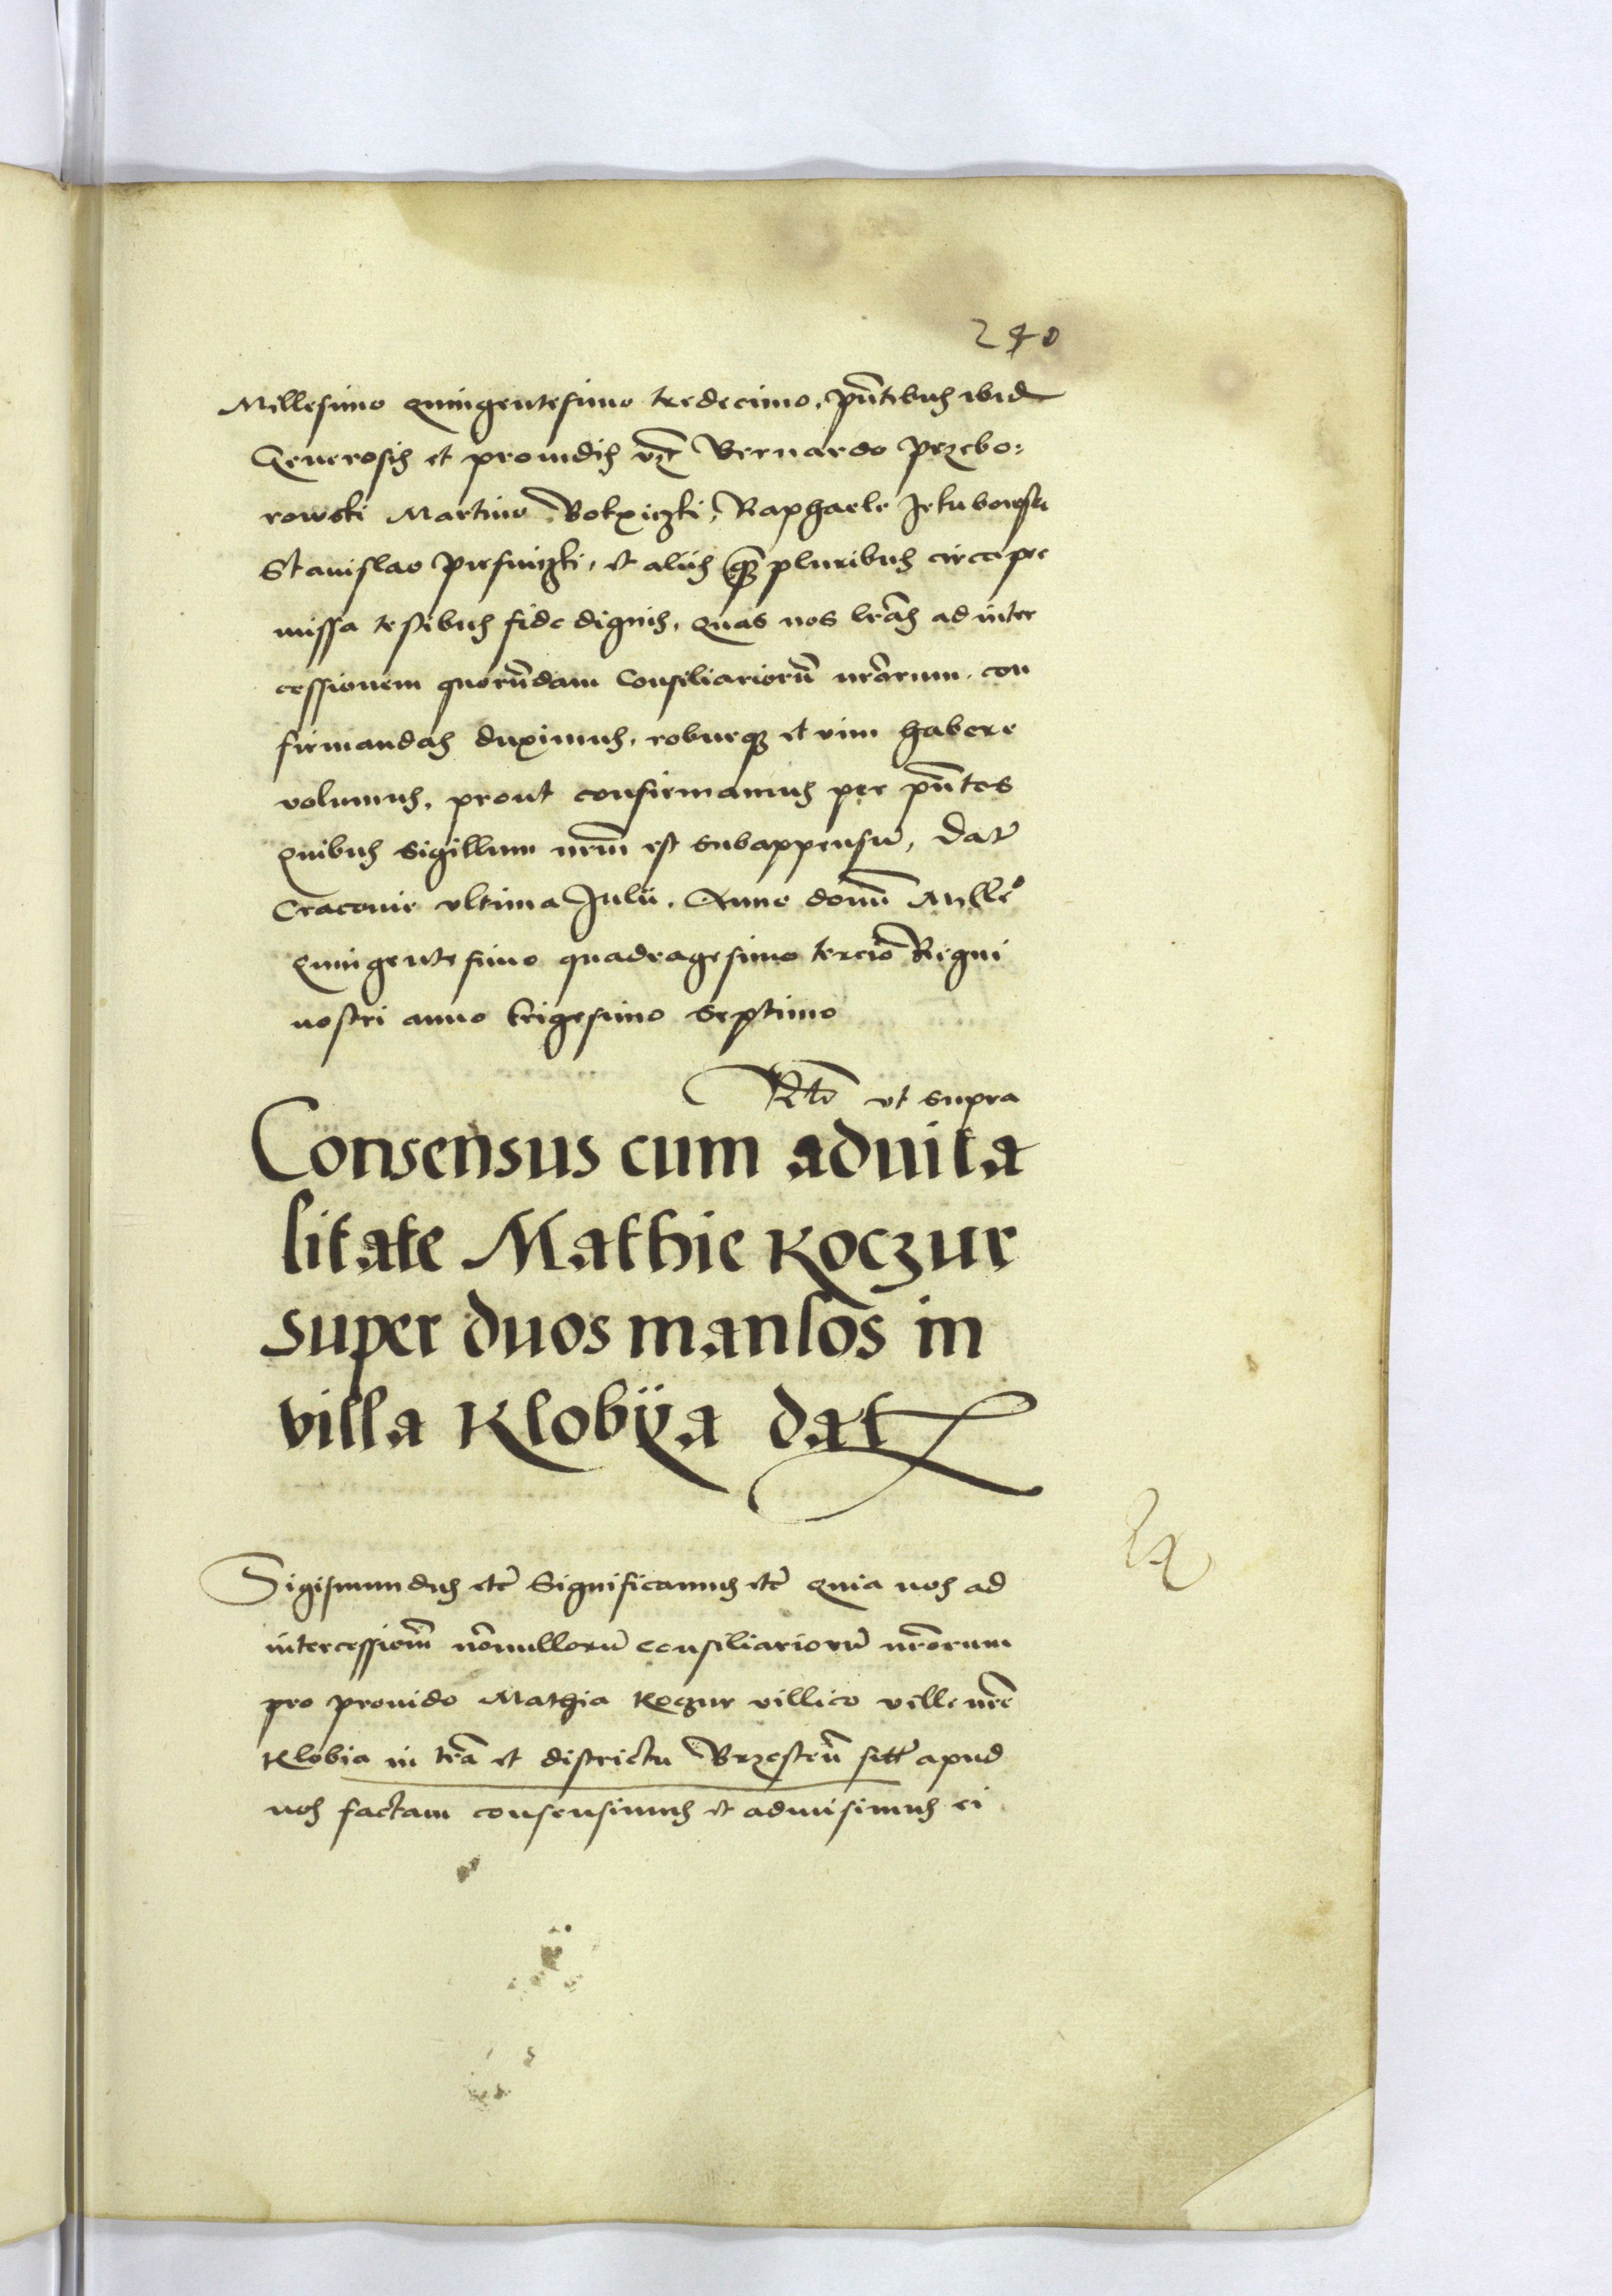 240
Millesimo quingentesimo tredecimo, pñtibus ibid
Generosis et prouidis vz Bernardo Przebo:
rowski Martino Raphaele Jakubowski
Stanislao et aliis qz pluribus circa pre
missa testibus fide dignis, quas nos lras ad inter
cessionem quorũdam Consiliariorũ nrorum, con
firmandas duximus, roburqz et vim habere
volumus, prout confirmamus per pñtes
quibus sigillum nrm̃ est subappensũ, Dat
Cracovie vltima Julii, Anno domi Mille°
quingentesimo quadragesimo tercio Regni
nostri anno trigesimo septimo
Rtĩo vt supra
Consensus cum aduita
litate Mathie Koczur
super duos mansos in
villa Klobÿa dat
Sigismundus etc Significamus etc quia nos ad
intercessionẽ nõnullorũ consiliariorũ nrorum
pro prouido Mathia Koczur villico ville nre
Klobia in tra et districtu Brzestẽn sitt apud
nos factam consensimus et admisimus ei